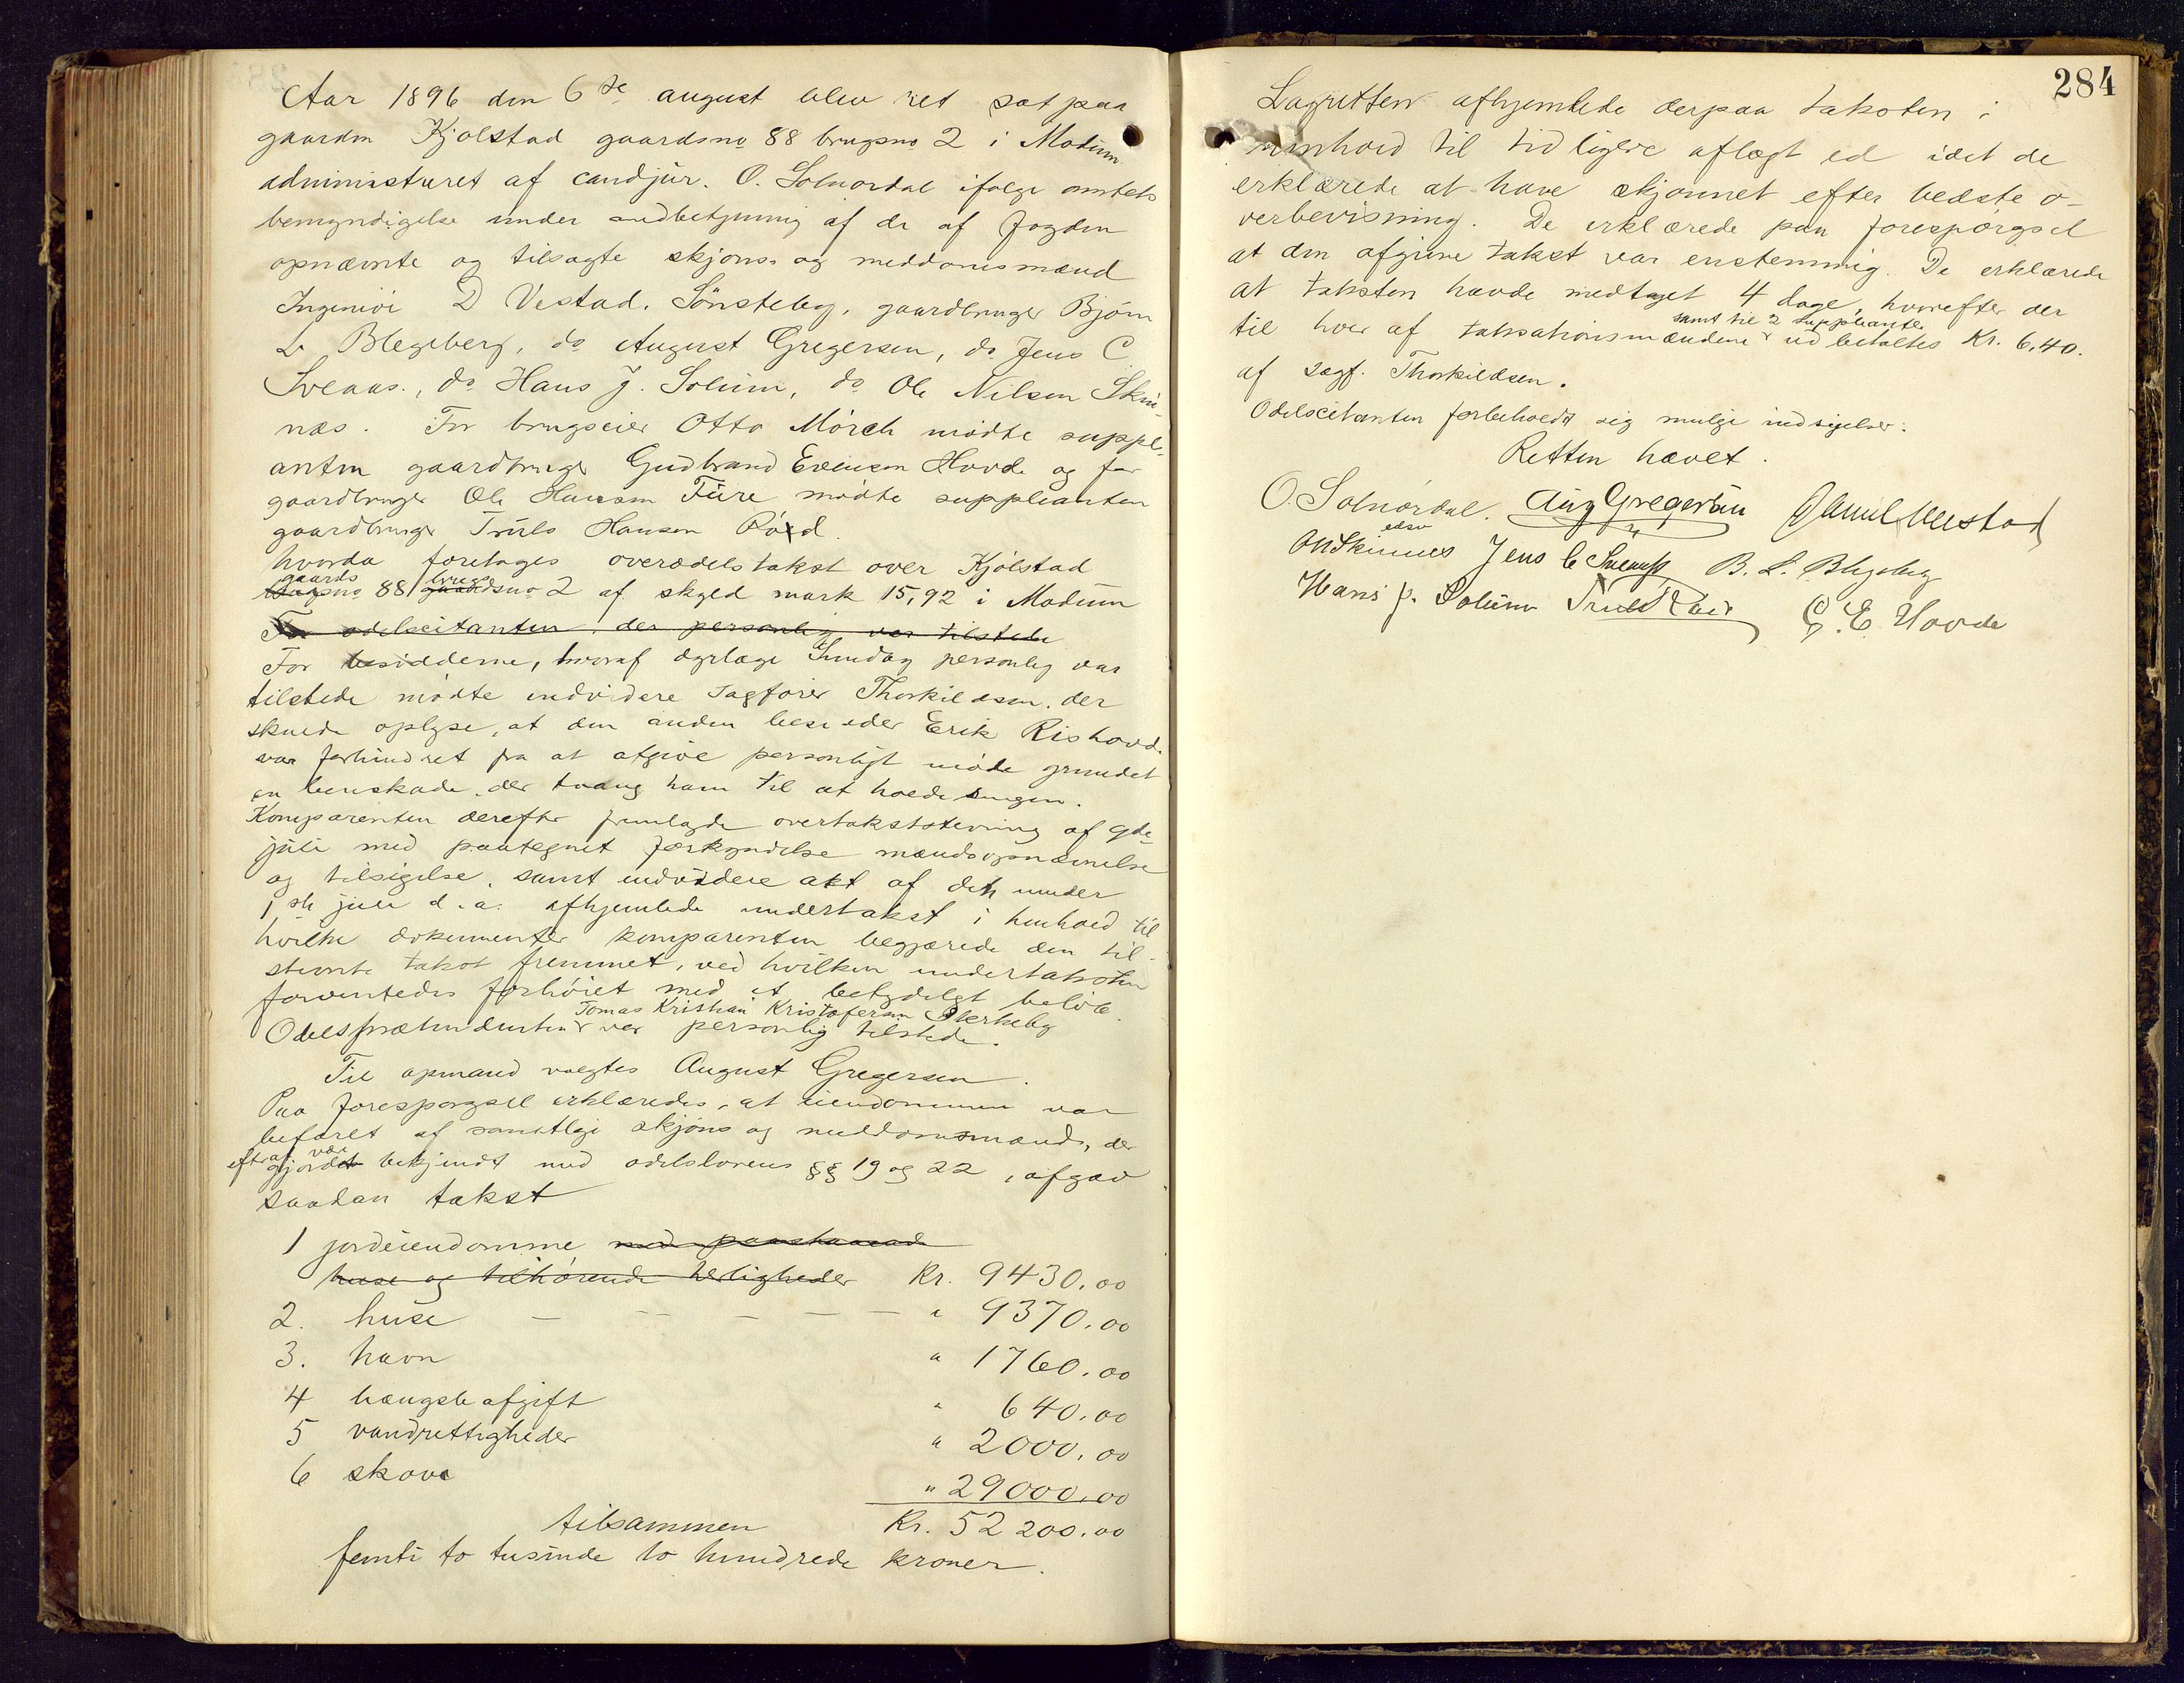 Aar 1896 den 6te august blev ret sat paa
gaarden Kjølstad gaardsno 88 brugsno 2 i Modum
administreret af candjur. O. Solnørdal ifølge amtets
bemyndigelse under medbetjening af de af fogden
opnævnte og tilsagte skjøns og meddomsmænd
Ingeniør D Vestad. Sönsteby, gaardbruger Bjørn
L Blegeberg, do August Gregersen, do Jens C
Sveaas., do Hans J. Solum, do Ole Nilsen Skin-
næs. For brugseier Otto Mörch mødte suppl-
anten gaardbruger Gudbrand Evensen Hovde og for
gaardbruger Ole Hansen Fure mødte suppleanten
gaardbruger Truls Hansen Röed.
hvorda foretoges overodelstakst over Kjølstad
gaards brugs
brugsno 88 gaardsno 2 af skyld mark 15,92 i Modum
For odelscitanten, der personlig var tilstede
For besidderne, hvoraf dyrlæge Sunday personlig var
tilstede mødte endvidere sagfører Thorkildsen, der
skulde oplyse, at den anden besidder Erik Rishovd.
var forhindret fra at afgive personligt møde grundet
en benskade, der tvang ham til at holde sengen.
Komparenten derefter fremlagde overtakststevning af 9de
juli med paategnet forkyndelse mændsopnævnelse
og tilsigelse, samt endvidere akt af den under
1ste juli d.a. afhjemlede undertakst i henhold til
hvilke dokumenter komparenten begjærede den til-
stevnte takst fremmet, ved hvilken undertaksten
forventedes forhøiet med et betydeligt beløb.
Tomas Kristian Kristofersen Skerkeby
Odelsprætendenten var personlig tilstede.
Til opmand valgtes August Gregersen.
Paa forespørgsel erklæredes, at eiendommen var
befaret af samtlige skjøns og meddomsmænd, der
efter at være
gjordet bekjendt med odelslovens §§ 19 og 22, afgav
saadan takst
1 jordeiendomme med paastaaende
huse og tilhørende herligheder Kr. 9430.00
2. huse — — — — — " 9370.00
3. havn " 1760.00
4 hængsleafgift " 640.00
5 vandrettigheder " 2000.00
6 skove " 29000.00
tilsammen Kr. 52 200.00
femti to tusinde to hundrede kroner.
284
Lagretten afhjemlede derpaa taksten i
henhold til tidligere aflagt ed idet de
erklærede at have skjønnet efter bedste o-
verbevisning. De erklærede paa forespørgsel
at den afgivne takst var enstemmig. De erklærede
at taksten havde medtaget 4 dage, hvorefter der
samt til 2 suppleanter
til hver af taksationsmændene udbetaltes Kr. 6,40.
af sagf. Thorkildsen.
Odelscitanten forbeholdt sig mulige indsigelser.
Retten hævet.
O. Solnørdal. Aug Gregersen Vestad
edsv
ON Skinnes Jens C Sveaas B. L. Blegeberg
Hans J. Solum Truls Röed G. E. Hovde